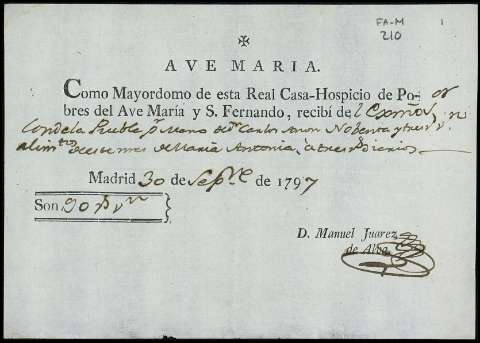 FA-M 1
210
AVE MARIA.
Como Mayordomo de esta Real Casa-Hospicio de Po-
bres del Ave María y S. Fernando, recibí de l Exmo Sor
Conde la Puebla pr mano de Dn Carlos Noventa y tres rs
alimtos de este mes de María Antonia, a tres rs diarios
Madrid 30 de Sepre de 1797
Son 90 rs vn
D. Manuel Juarez
de Alva.